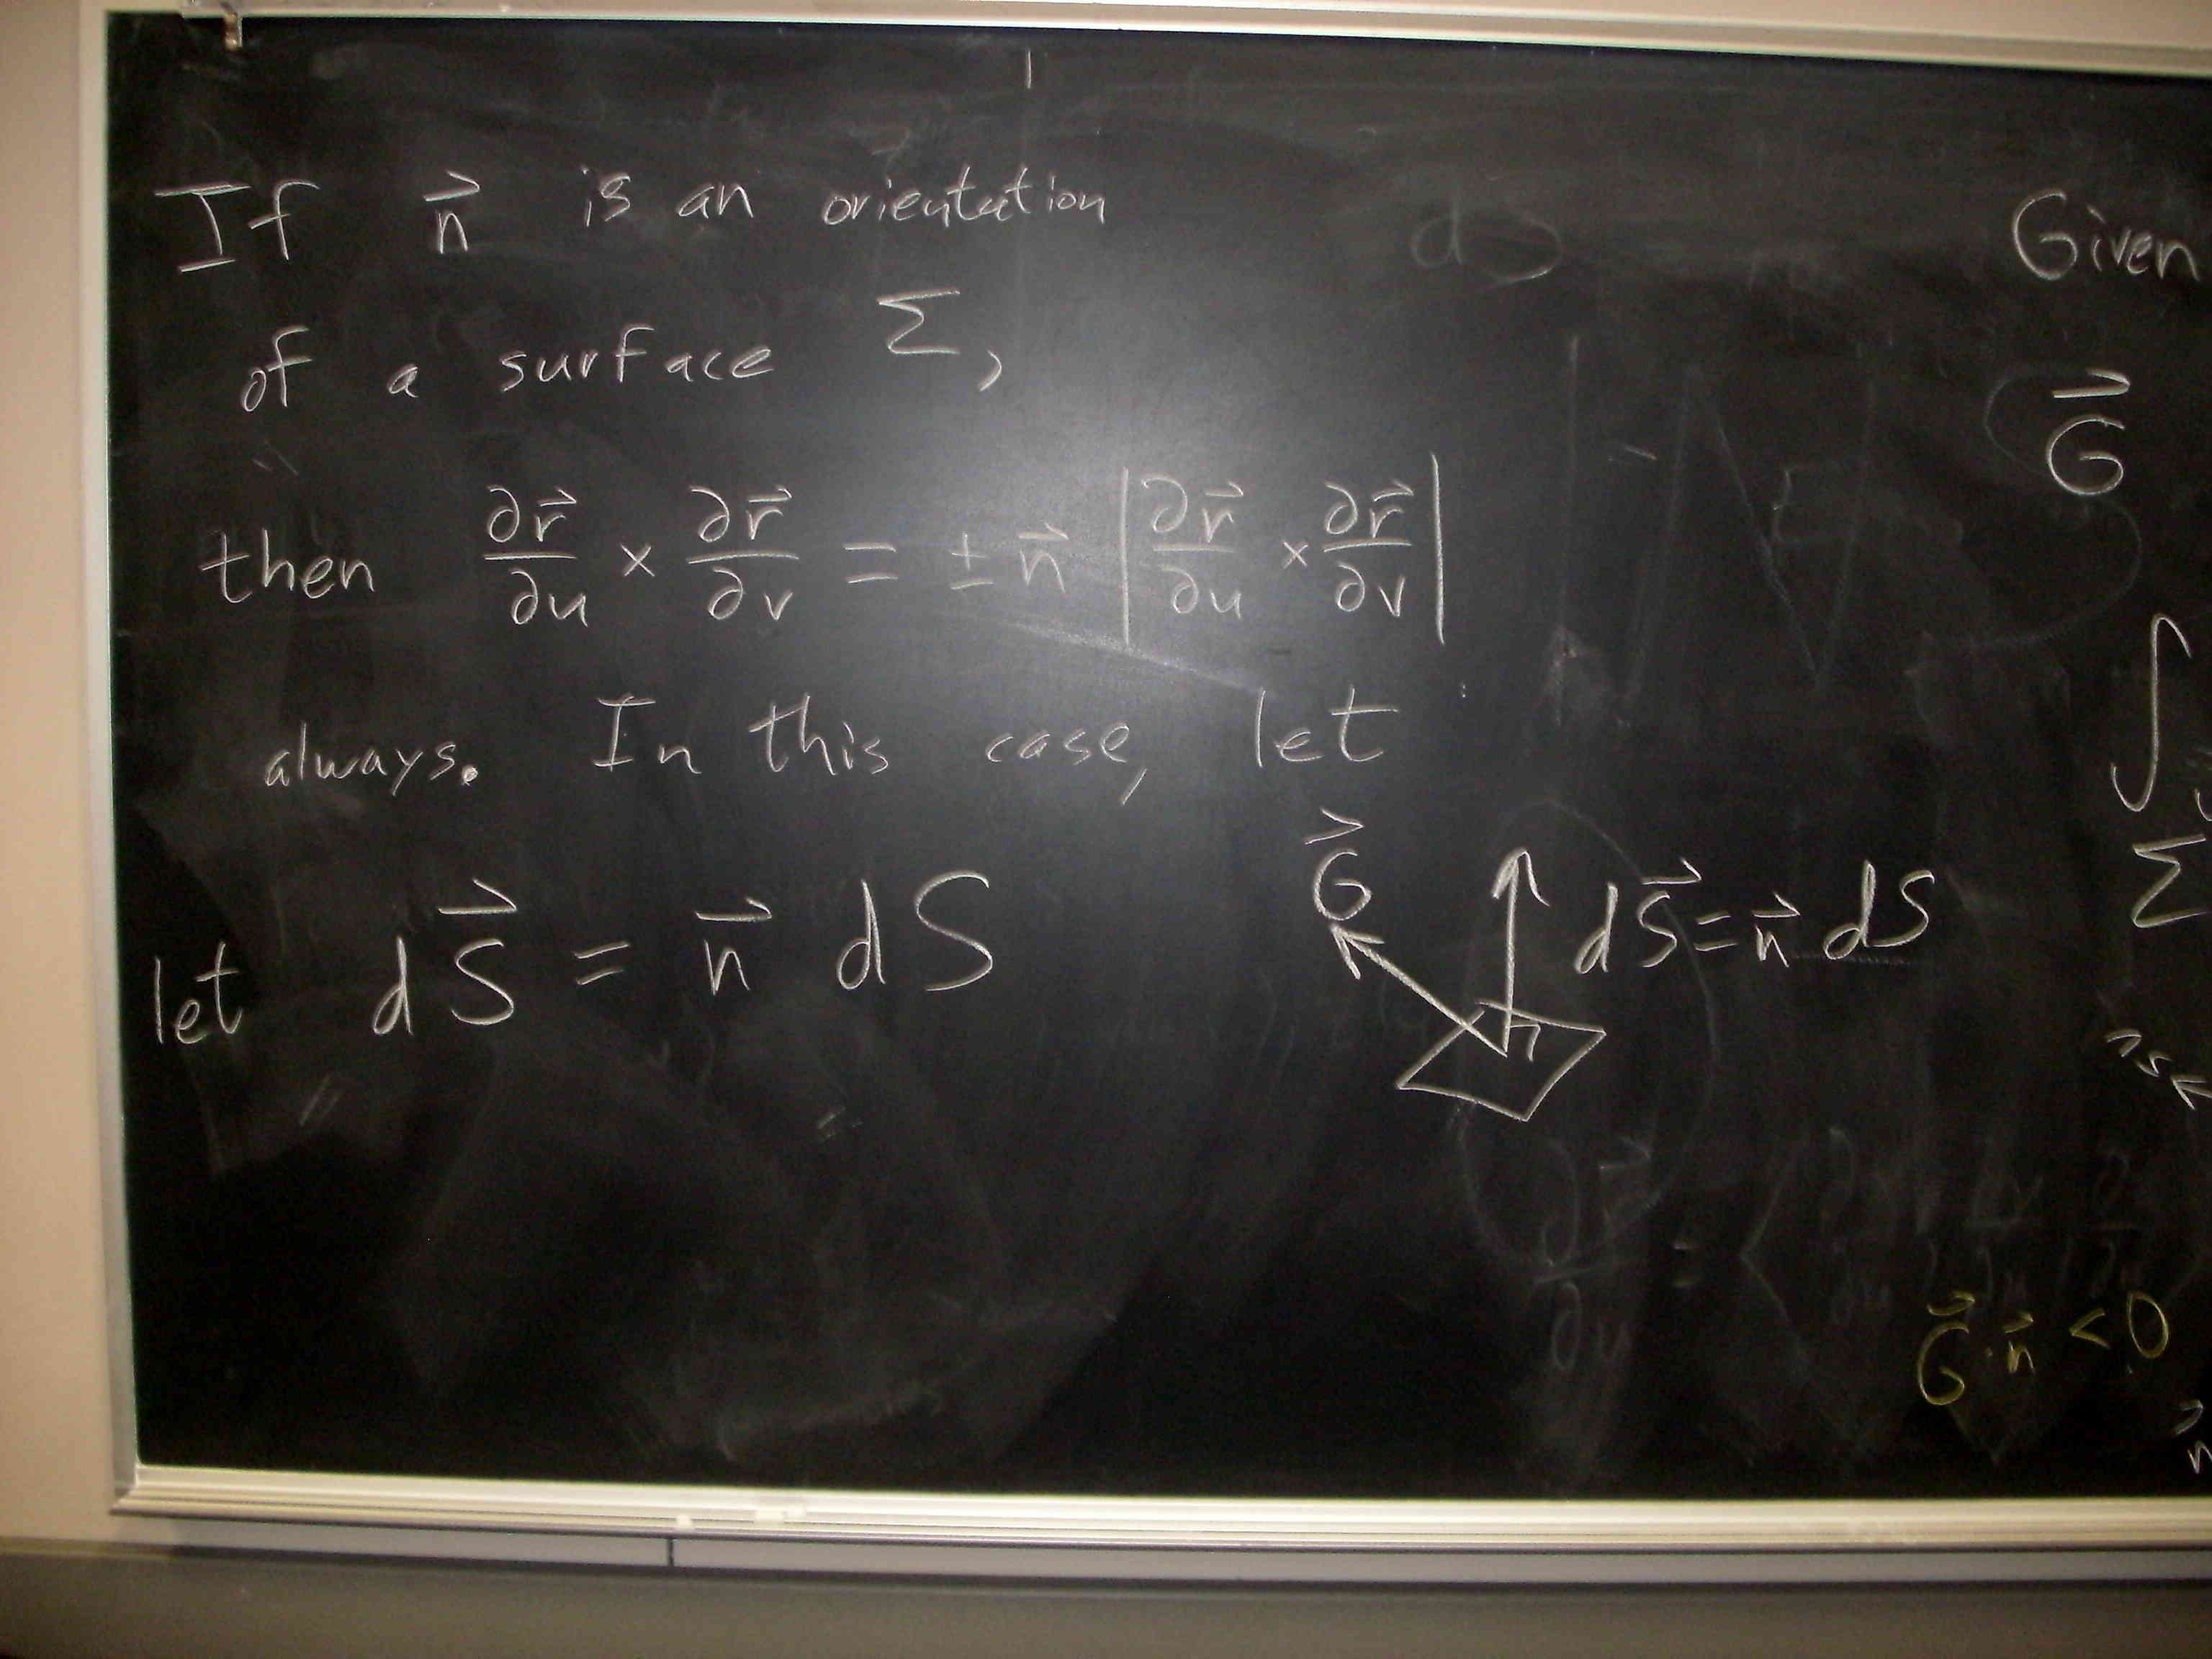 If n⃗ is an orientation
of a surface Σ,
then ∂r⃗/∂u × ∂r⃗/∂v = ± n⃗ |∂r⃗/∂u × ∂r⃗/∂v|
always. In this case, let
let dS⃗ = n⃗ dS
G⃗
dS⃗ = n⃗ dS
Given
G⃗
∫
Σ
G⃗ · n⃗ < 0
n⃗